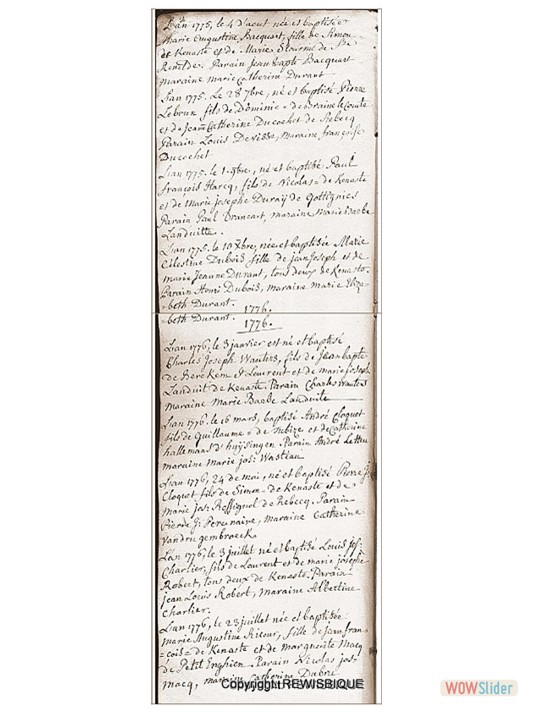 L'an 1775, le 4 d'aout née et baptisée
Marie Augustine Bacquart, fille de Simon
de Kenaste et de Marie Stourme de Ste
Renelde. Parain jean bapte Bacquart
maraine marie Catherine Durant
L'an 1775. Le 28 7bre, né et baptisé Pierre
Lebrun fils de Dominic = de braine le Comte
et de jeane Catherine Ducochet de Rebecq
Parain Louis Devisse, maraine françoise
Ducochet
L'an 1775. le 1. 9bre, né et baptisé Paul
françois Harcq, fils de Nicolas = de Kenaste
et de marie josephe Duray de Gottignies
Parain Paul Brancart, maraine marie barbe
Landuitte.
L'an 1775. le 10 Xbre, née et baptisée Marie
Célestine Dubois fille de jean joseph et de
marie jeanne Durant, tous deux de Kenaste.
Parain Henri Dubois, maraine marie Eliza-
-beth Durant.
1776.
-beth Durant.
1776.
L'an 1776, le 3 janvier est né et baptisé
Charles Joseph Wauters, fils de jean bapte
de Berckem St Laurent et de marie joseph
Landuit de Kenaste Parain Charles Wauters
maraine Marie Barbe Landuite
L'an 1776. le 16 mars, baptisé André Cloquet
fils de Guillaume = de et de Catherine
hallemans d'huysingen. Parain André
maraine marie jos: Wasteau
L'an 1776, 24 de mai, né et baptisé Pierre J:
Cloquet fils de Simon = de Kenaste et de
marie jos: Rossignol de Rebecq. Parain
Pierre J: maraine Catherine
vandrugembroeck.
L'an 1776. le 3 juillet né et baptisé Louis Jos:
Charlier, fils de Laurent et de marie josephe
Robert, tous deux de Kenaste. Parain
jean Louis Robert, maraine Albertine
Charlier.
L'an 1776, le 23 juillet née et baptisée
marie Augustine Ricour, fille de jean fran-
=cois = de Kenaste et de margueritte macq
de Petit Enghien. Parain Nicolas jos:
macq, maraine Catherine Dubré
Copyright REWISBIQUE
WOWSlider